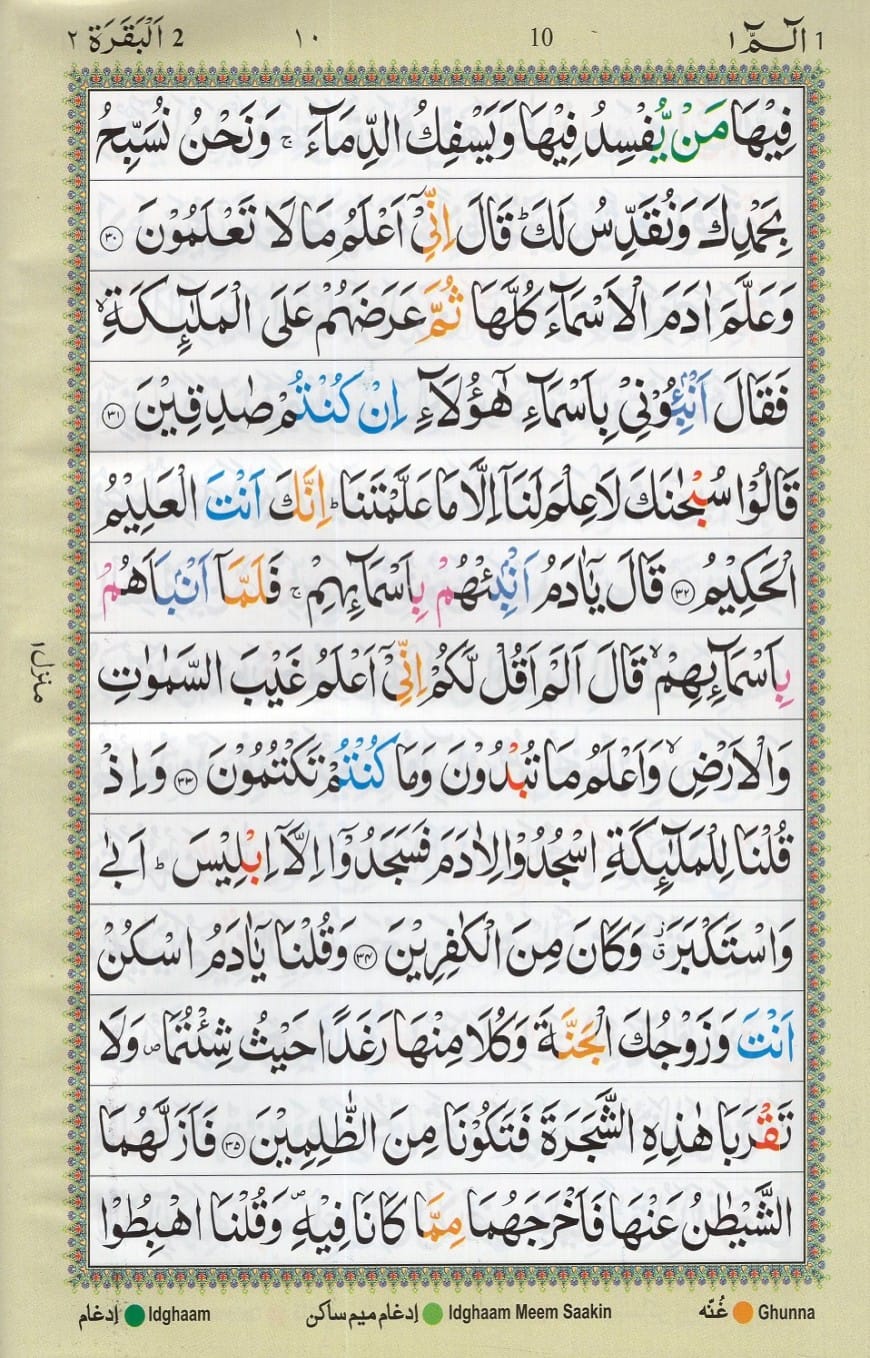 1 الٓمّٓ ١ 10 ١٠ 2 اَلْبَقَرَة ٢
فِيْهَا مَنْ يُّفْسِدُ فِيْهَا وَيَسْفِكُ الدِّمَآءَ ۚ وَنَحْنُ نُسَبِّحُ
بِحَمْدِكَ وَنُقَدِّسُ لَكَ ؕ قَالَ اِنِّيْۤ اَعْلَمُ مَا لَا تَعْلَمُوْنَ ۝٣٠
وَعَلَّمَ اٰدَمَ الْاَسْمَآءَ كُلَّهَا ثُمَّ عَرَضَهُمْ عَلَى الْمَلٰٓئِكَةِ ۙ
فَقَالَ اَنْۢبِـُٔوْنِيْ بِاَسْمَآءِ هٰۤؤُلَآءِ اِنْ كُنْتُمْ صٰدِقِيْنَ ۝٣١
قَالُوْا سُبْحٰنَكَ لَا عِلْمَ لَنَاۤ اِلَّا مَا عَلَّمْتَنَا ؕ اِنَّكَ اَنْتَ الْعَلِيْمُ
الْحَكِيْمُ ۝٣٢ قَالَ يٰۤاٰدَمُ اَنْۢبِئْهُمْ بِاَسْمَآئِهِمْ ۚ فَلَمَّاۤ اَنْۢبَاَهُمْ
بِاَسْمَآئِهِمْ ۙ قَالَ اَلَمْ اَقُلْ لَّكُمْ اِنِّيْۤ اَعْلَمُ غَيْبَ السَّمٰوٰتِ
وَالْاَرْضِ ۙ وَاَعْلَمُ مَا تُبْدُوْنَ وَمَا كُنْتُمْ تَكْتُمُوْنَ ۝٣٣ وَاِذْ
قُلْنَا لِلْمَلٰٓئِكَةِ اسْجُدُوْا لِاٰدَمَ فَسَجَدُوْۤا اِلَّاۤ اِبْلِيْسَ ؕ اَبٰى
وَاسْتَكْبَرَ ۗ وَكَانَ مِنَ الْكٰفِرِيْنَ ۝٣٤ وَقُلْنَا يٰۤاٰدَمُ اسْكُنْ
اَنْتَ وَزَوْجُكَ الْجَنَّةَ وَكُلَا مِنْهَا رَغَدًا حَيْثُ شِئْتُمَا ۪ وَلَا
تَقْرَبَا هٰذِهِ الشَّجَرَةَ فَتَكُوْنَا مِنَ الظّٰلِمِيْنَ ۝٣٥ فَاَزَلَّهُمَا
الشَّيْطٰنُ عَنْهَا فَاَخْرَجَهُمَا مِمَّا كَانَا فِيْهِ ۪ وَقُلْنَا اهْبِطُوْا
منزل ١
غُنّه Ghunna إدغام ميم ساكن Idghaam Meem Saakin إدغام Idghaam